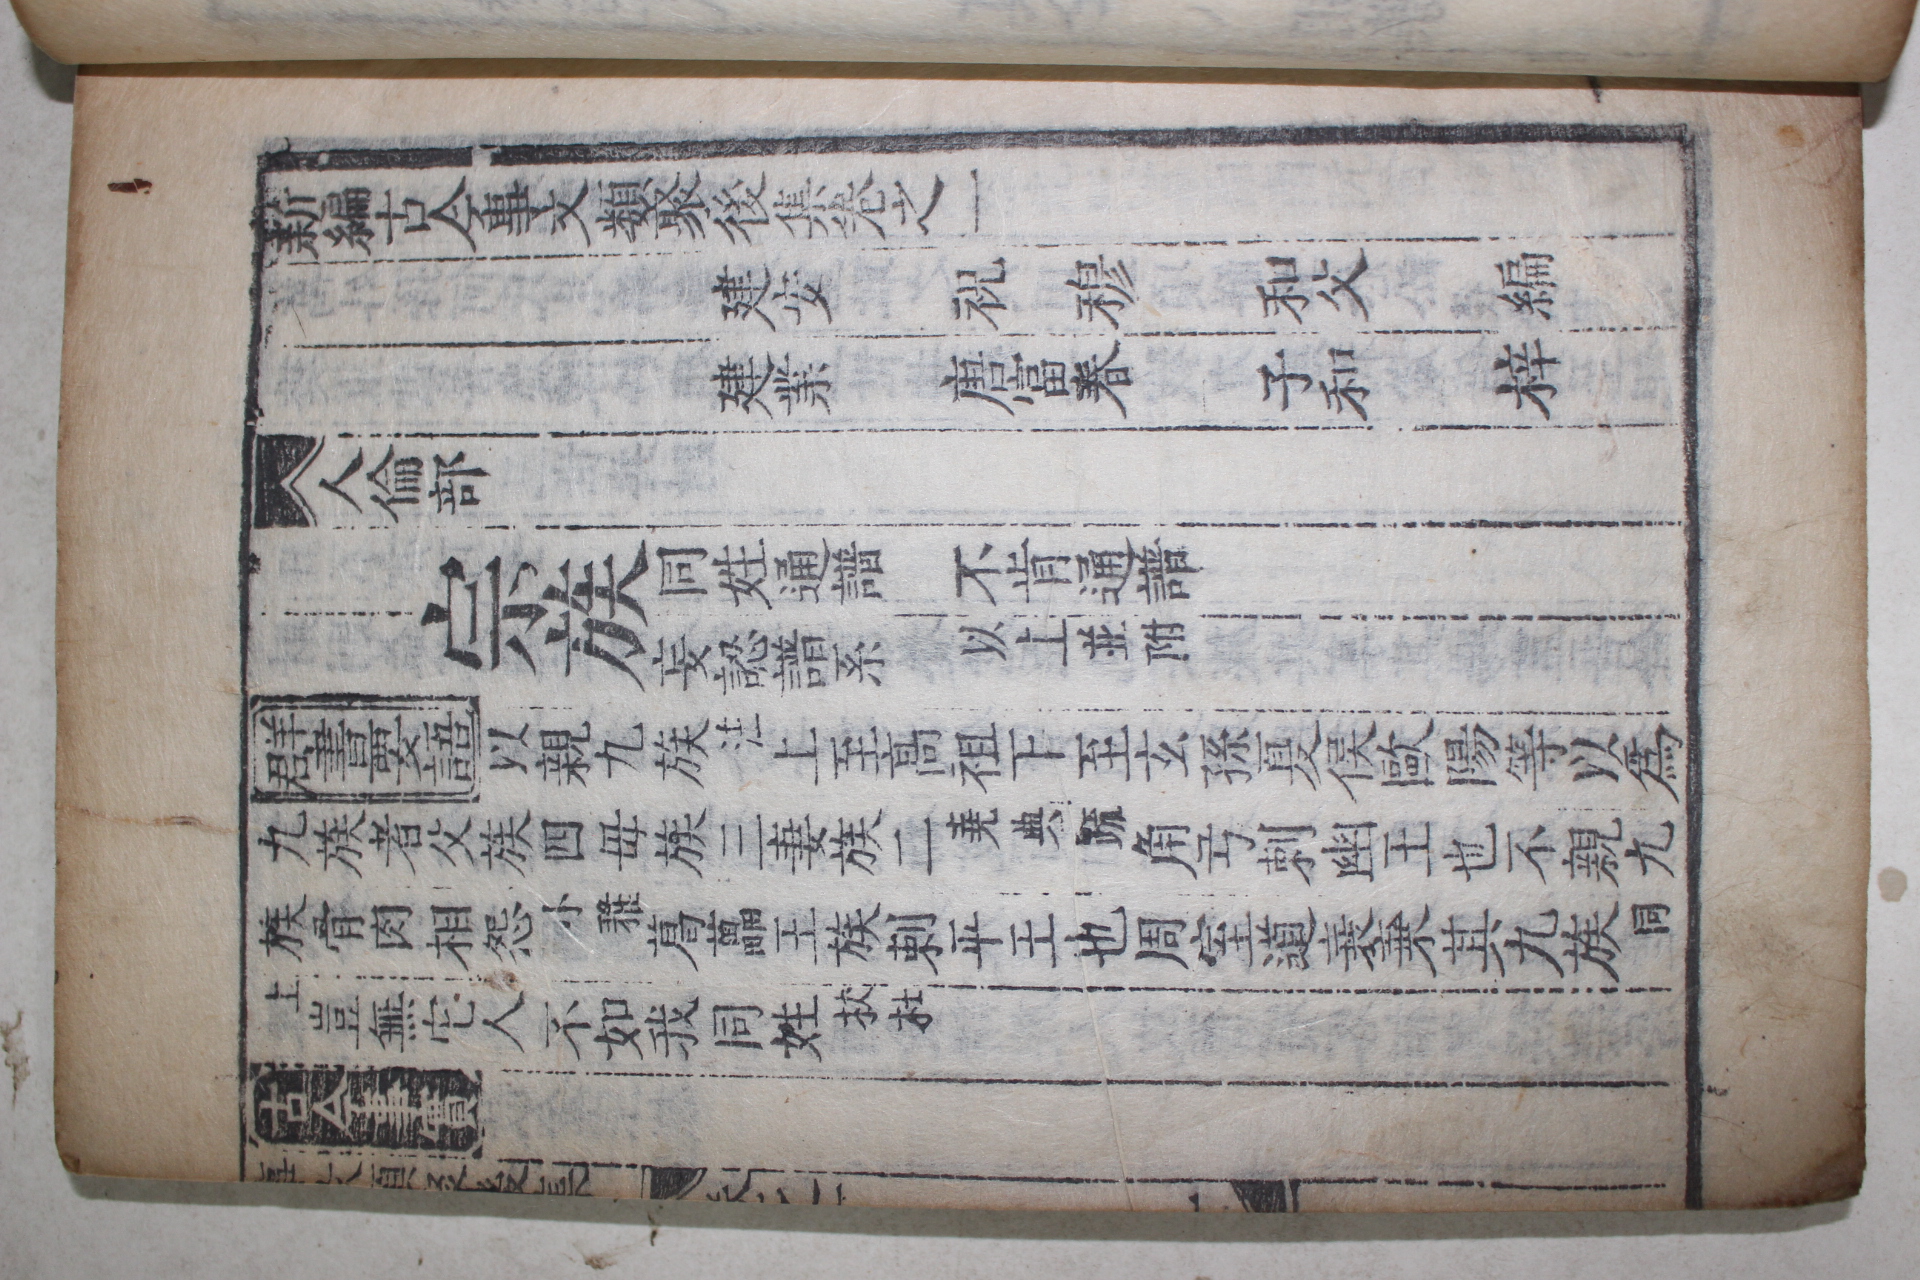 新編古今事文類聚後集卷之一
建安 祝穆 和父 編
建業 唐富春 子和 梓
人倫部
宗族 同姓通譜 不肯通譜
妄認譜系 以上並附
群書要語 以親九族注上至高祖下至玄孫夏侯歐陽等以爲
九族者父族四母族三妻族二堯典疏角弓刺幽王也不親九
族骨肉相怨小雅葛藟王族刺平王也周室道衰棄其九族同
上豈無它人不如我同姓杕杜
古今事實